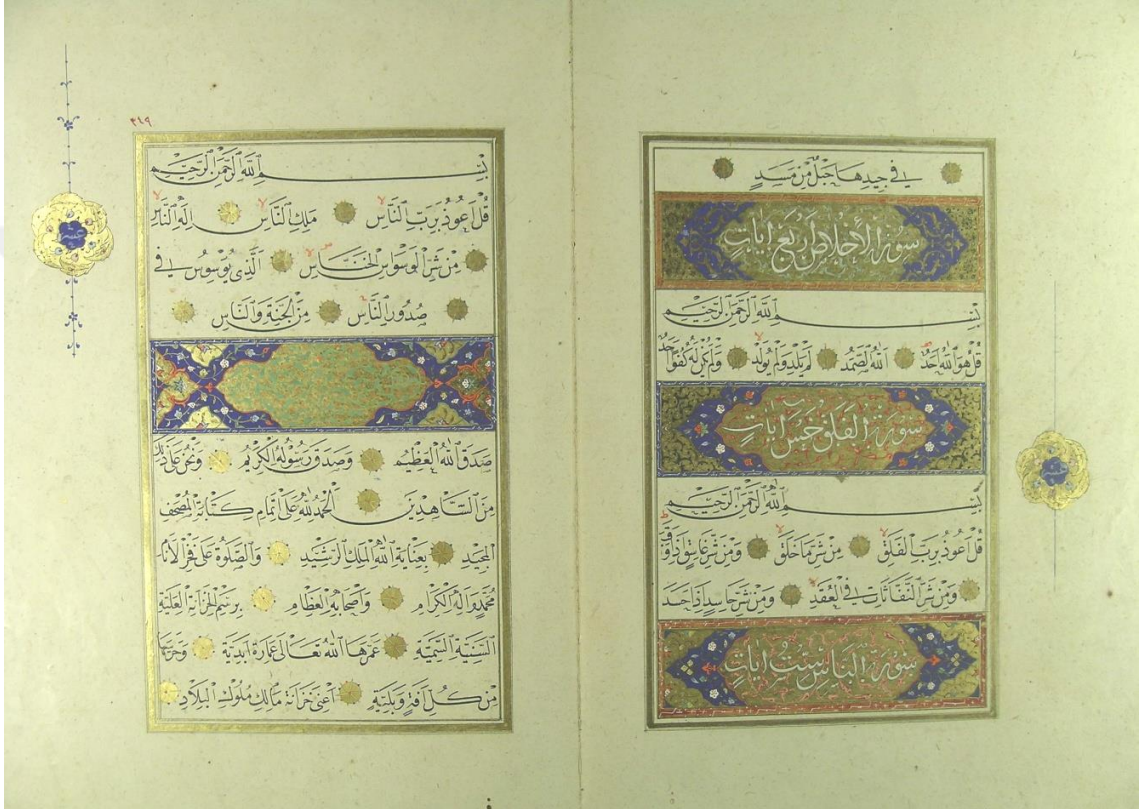 في جيدها حبل من مسد
سورة الأخلاص اربع ايات
بسم الله الرحمن الرحيم
قل هو الله احد الله الصمد لم يلد ولم يولد ولم يكن له كفوا احد
سورة الفلق خمس ايات
بسم الله الرحمن الرحيم
قل اعوذ برب الفلق من شر ما خلق ومن شر غاسق اذا وقب
ومن شر النفاثات في العقد ومن شر حاسد اذا حسد
سورة الناس ست ايات
٣١٩
بسم الله الرحمن الرحيم
قل اعوذ برب الناس ملك الناس اله الناس
من شر الوسواس الخناس الذي يوسوس في
صدور الناس من الجنة والناس
صدق الله العظيم وصدق رسوله الكريم ونحن على ذلك
من الشاهدين الحمد لله على اتمام كتابة المصحف
المجيد بعناية الله الملك الرشيد والصلوة على فخر الأنام
محمد واله الكرام واصحابه العظام برسم الخزانة العلية
السنية السمية عمرها الله تعالى عمارة ابدية وحرسها
من كل افة وبلية اعني خزانة مالك ملوك البلاد